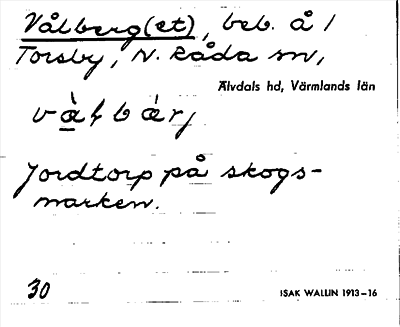 Vålberg(et), beb. å /
Torsby, N. Råda sn,
Älvdals hd, Värmlands län
Jordtorp på skogs-
marken.
30
ISAK WALLIN 1913–16